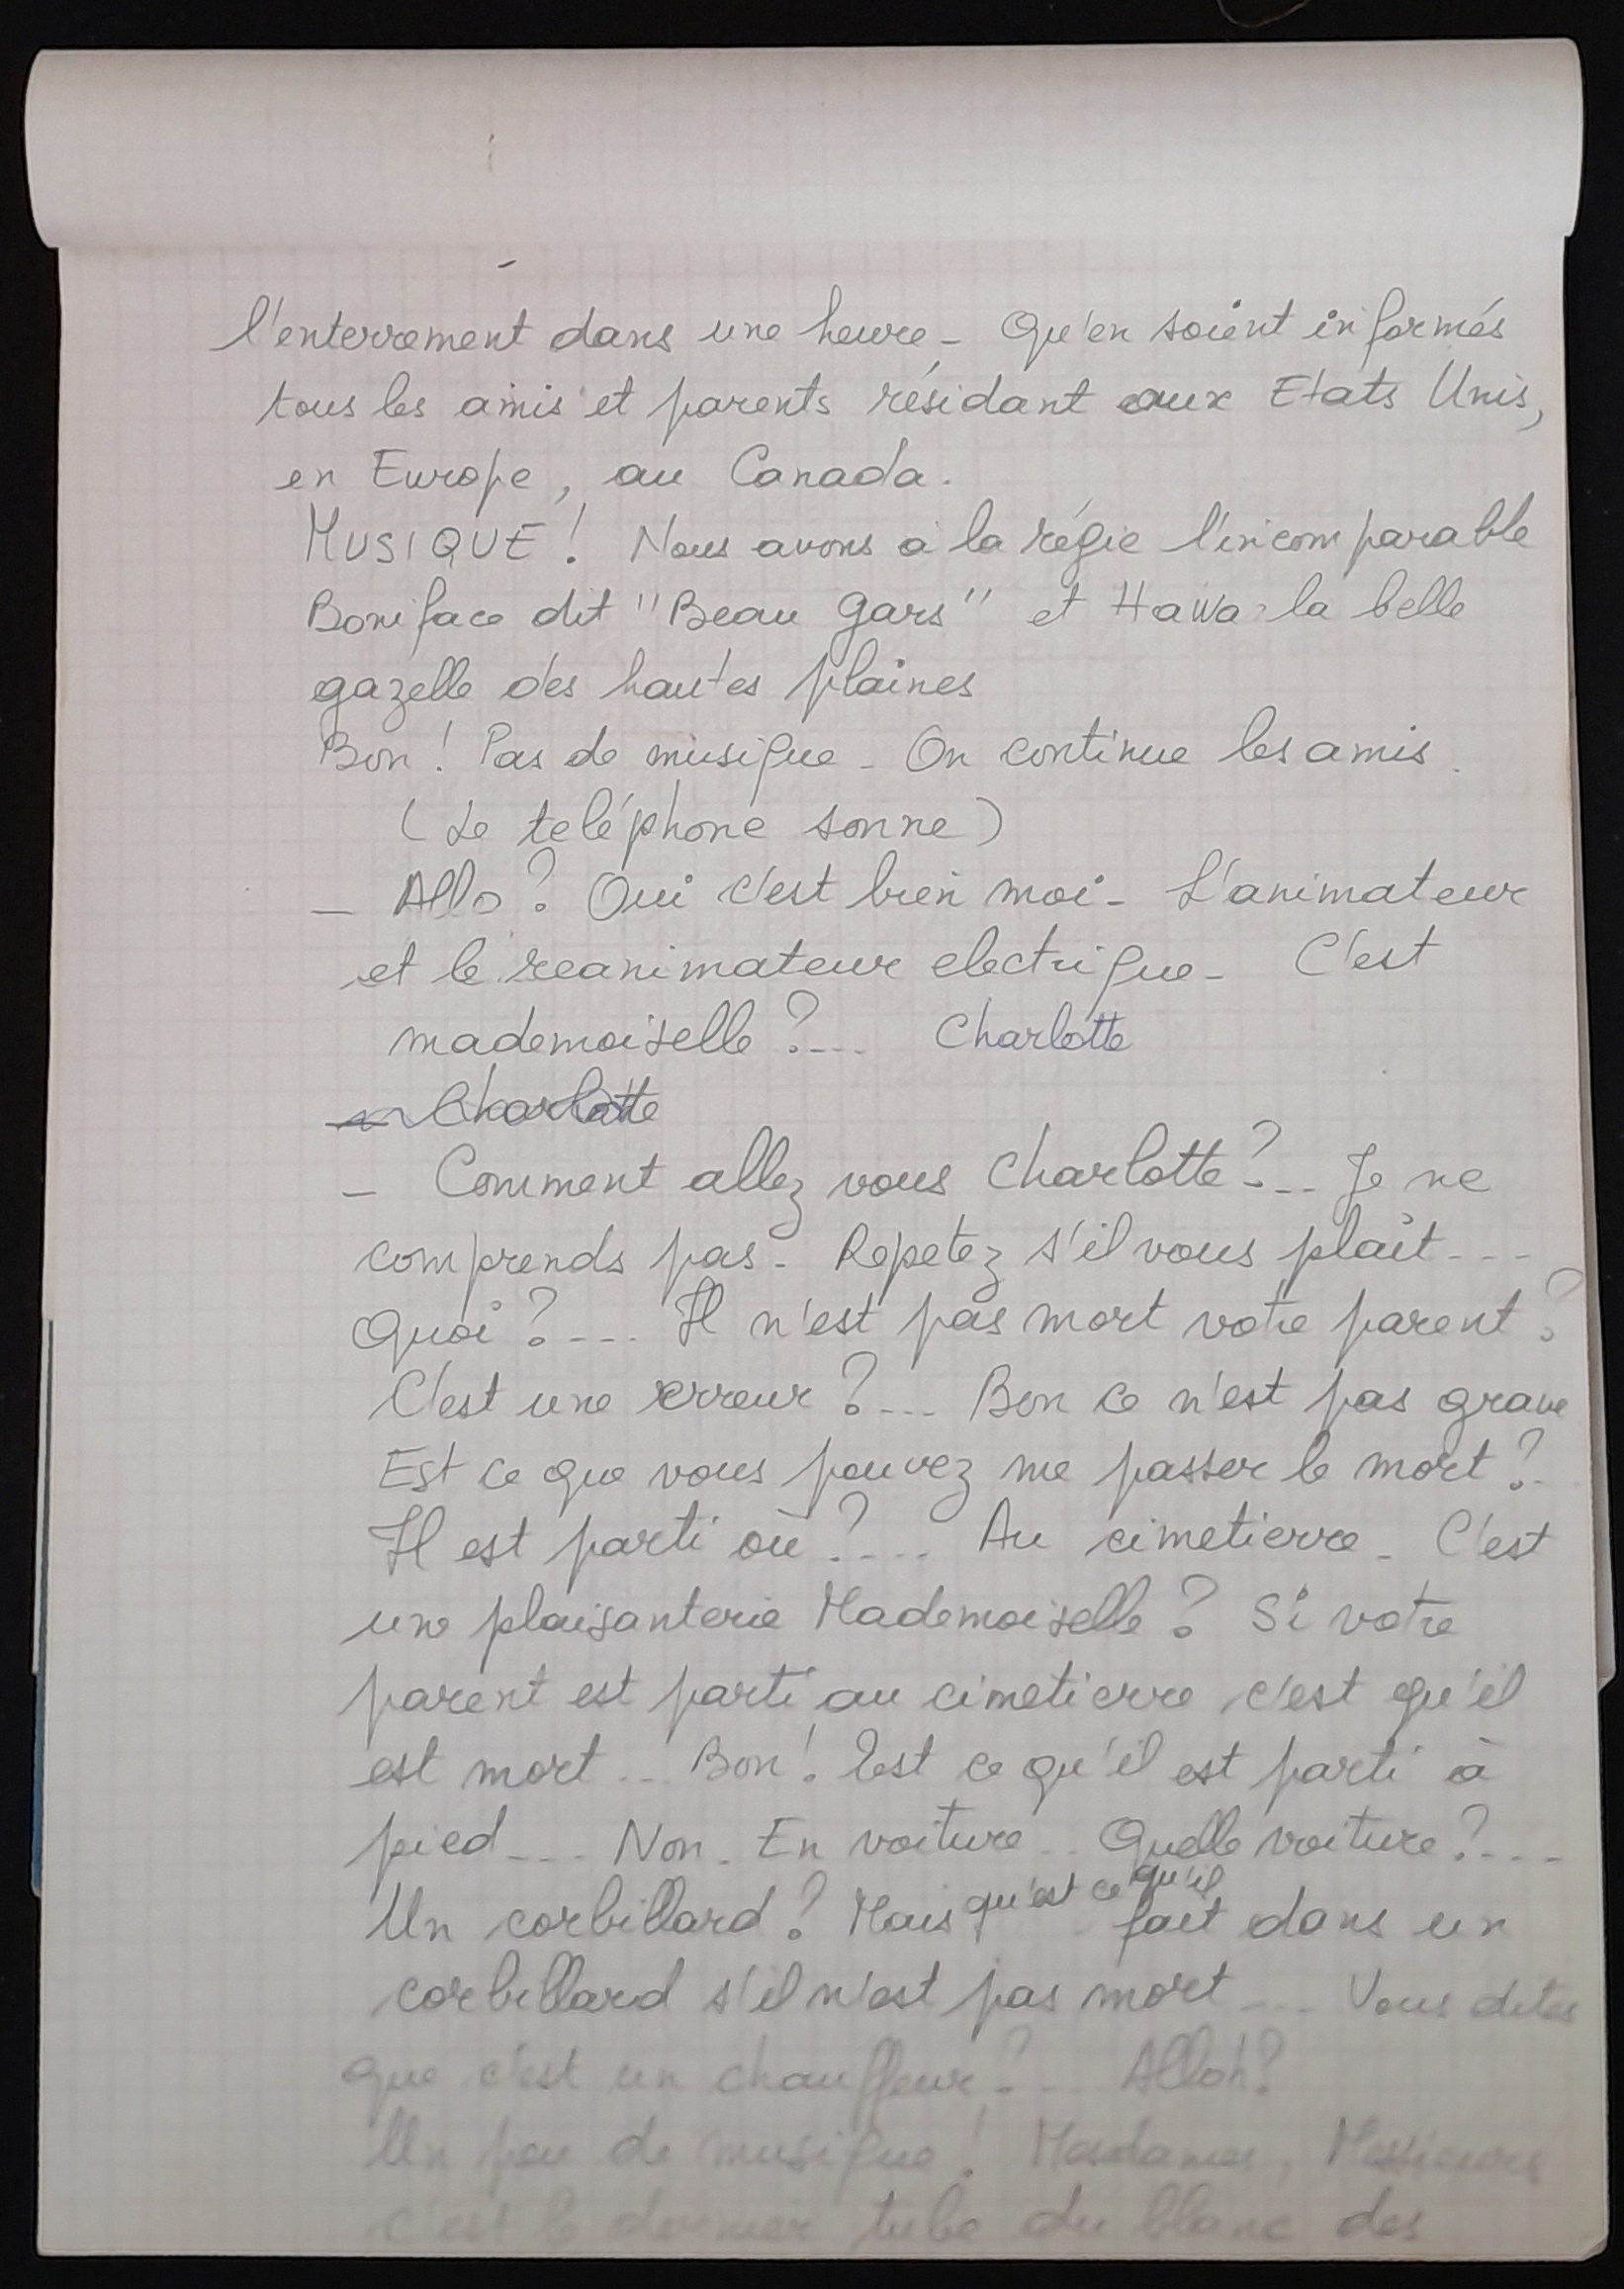 l'enterrement dans une heure - Qu'en soient informés
tous les amis et parents résidant aux Etats Unis,
en Europe, au Canada.
MUSIQUE! Nous avons à la régie l'incomparable
Boniface dit "Beau gars" et Hawa la belle
gazelle des hautes plaines
Bon! Pas de musique - On continue les amis.
(Le teléphone sonne)
- Allo? Oui c'est bien moi - L'animateur
et le reanimateur electrique - C'est
mademoiselle?... Charlotte
Charlotte
- Comment allez vous Charlotte?... Je ne
comprends pas - Repetez s'il vous plaît ---
Quoi?---- Il n'est pas mort votre parent?
C'est une erreur?--- Bon ce n'est pas grave
Est ce que vous pouvez me passer le mort?
Il est parti où?.... Au cimetierre - C'est
une plaisanterie Mademoiselle? Si votre
parent est parti au cimetierre c'est qu'il
est mort... Bon! Est ce qu'il est parti à
pied --- Non - En voiture .. Quelle voiture?---
Un corbillard? Mais qu'est ce qu'il fait dans un
corbillard s'il n'est pas mort ---- Vous dites
que c'est un chauffeur?--- Alloh?
Un peu de musique! Mesdames, Messieurs
c'est le dernier tube du blanc des